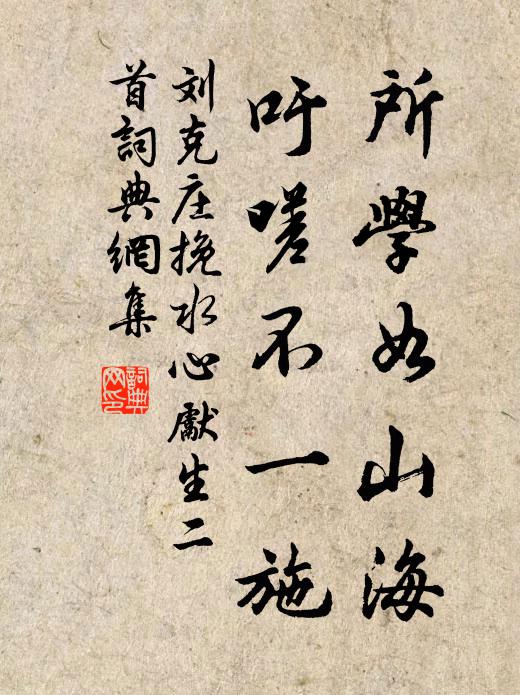 所學如山海
吁嗟不一施
刘克庄挽水心獻生二
首詞典網集
詞典
网印